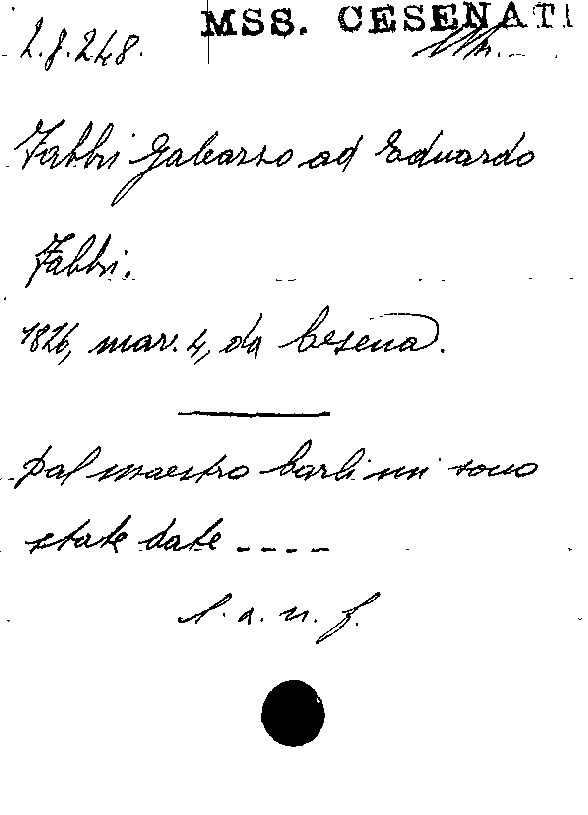 MSS. CESENATI
2.8.248.
Fabbri Galeazzo ad Eduardo
Fabbri.
1826, mar. 4, da Cesena.
Dal maestro Carli mi sono
state date ----
l. a. n. f.